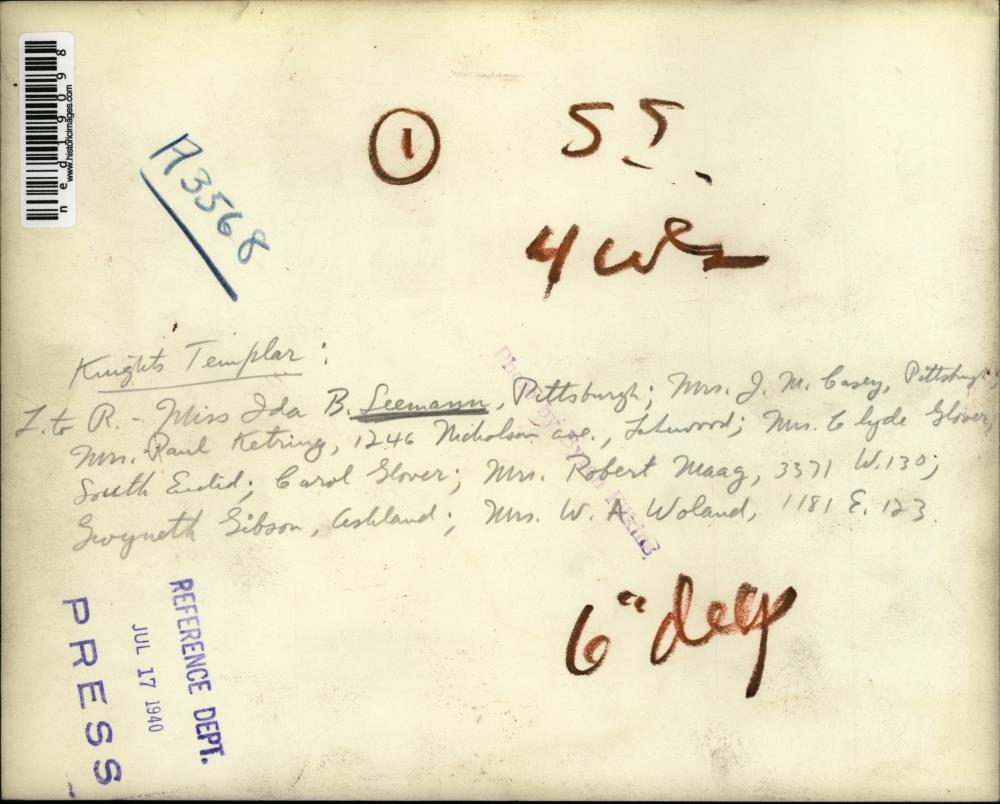 ned19098
www.historicimages.com
A3568
1
55
4 cols
Knights Templar:
L. to R. - Miss Ida B. Leemann, Pittsburgh; Mrs. J. M. Casey, Pittsburgh;
Mrs. Paul Ketring, 1246 Nicholson ave., Lakewood; Mrs. Clyde Glover,
South Euclid; Carol Glover; Mrs. Robert Maag, 3371 W. 130;
Gwyneth Gibson, Ashland; Mrs. W. A Woland, 1181 E. 123.
Photo by
6" deep
PRESS
JUL 17 1940
REFERENCE DEPT.